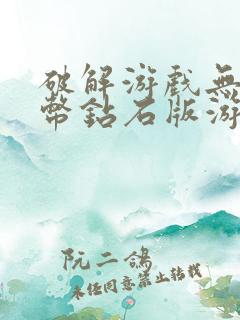 破解游戲無
幣鉆石版游
阮二鴿
未经同意禁止转载